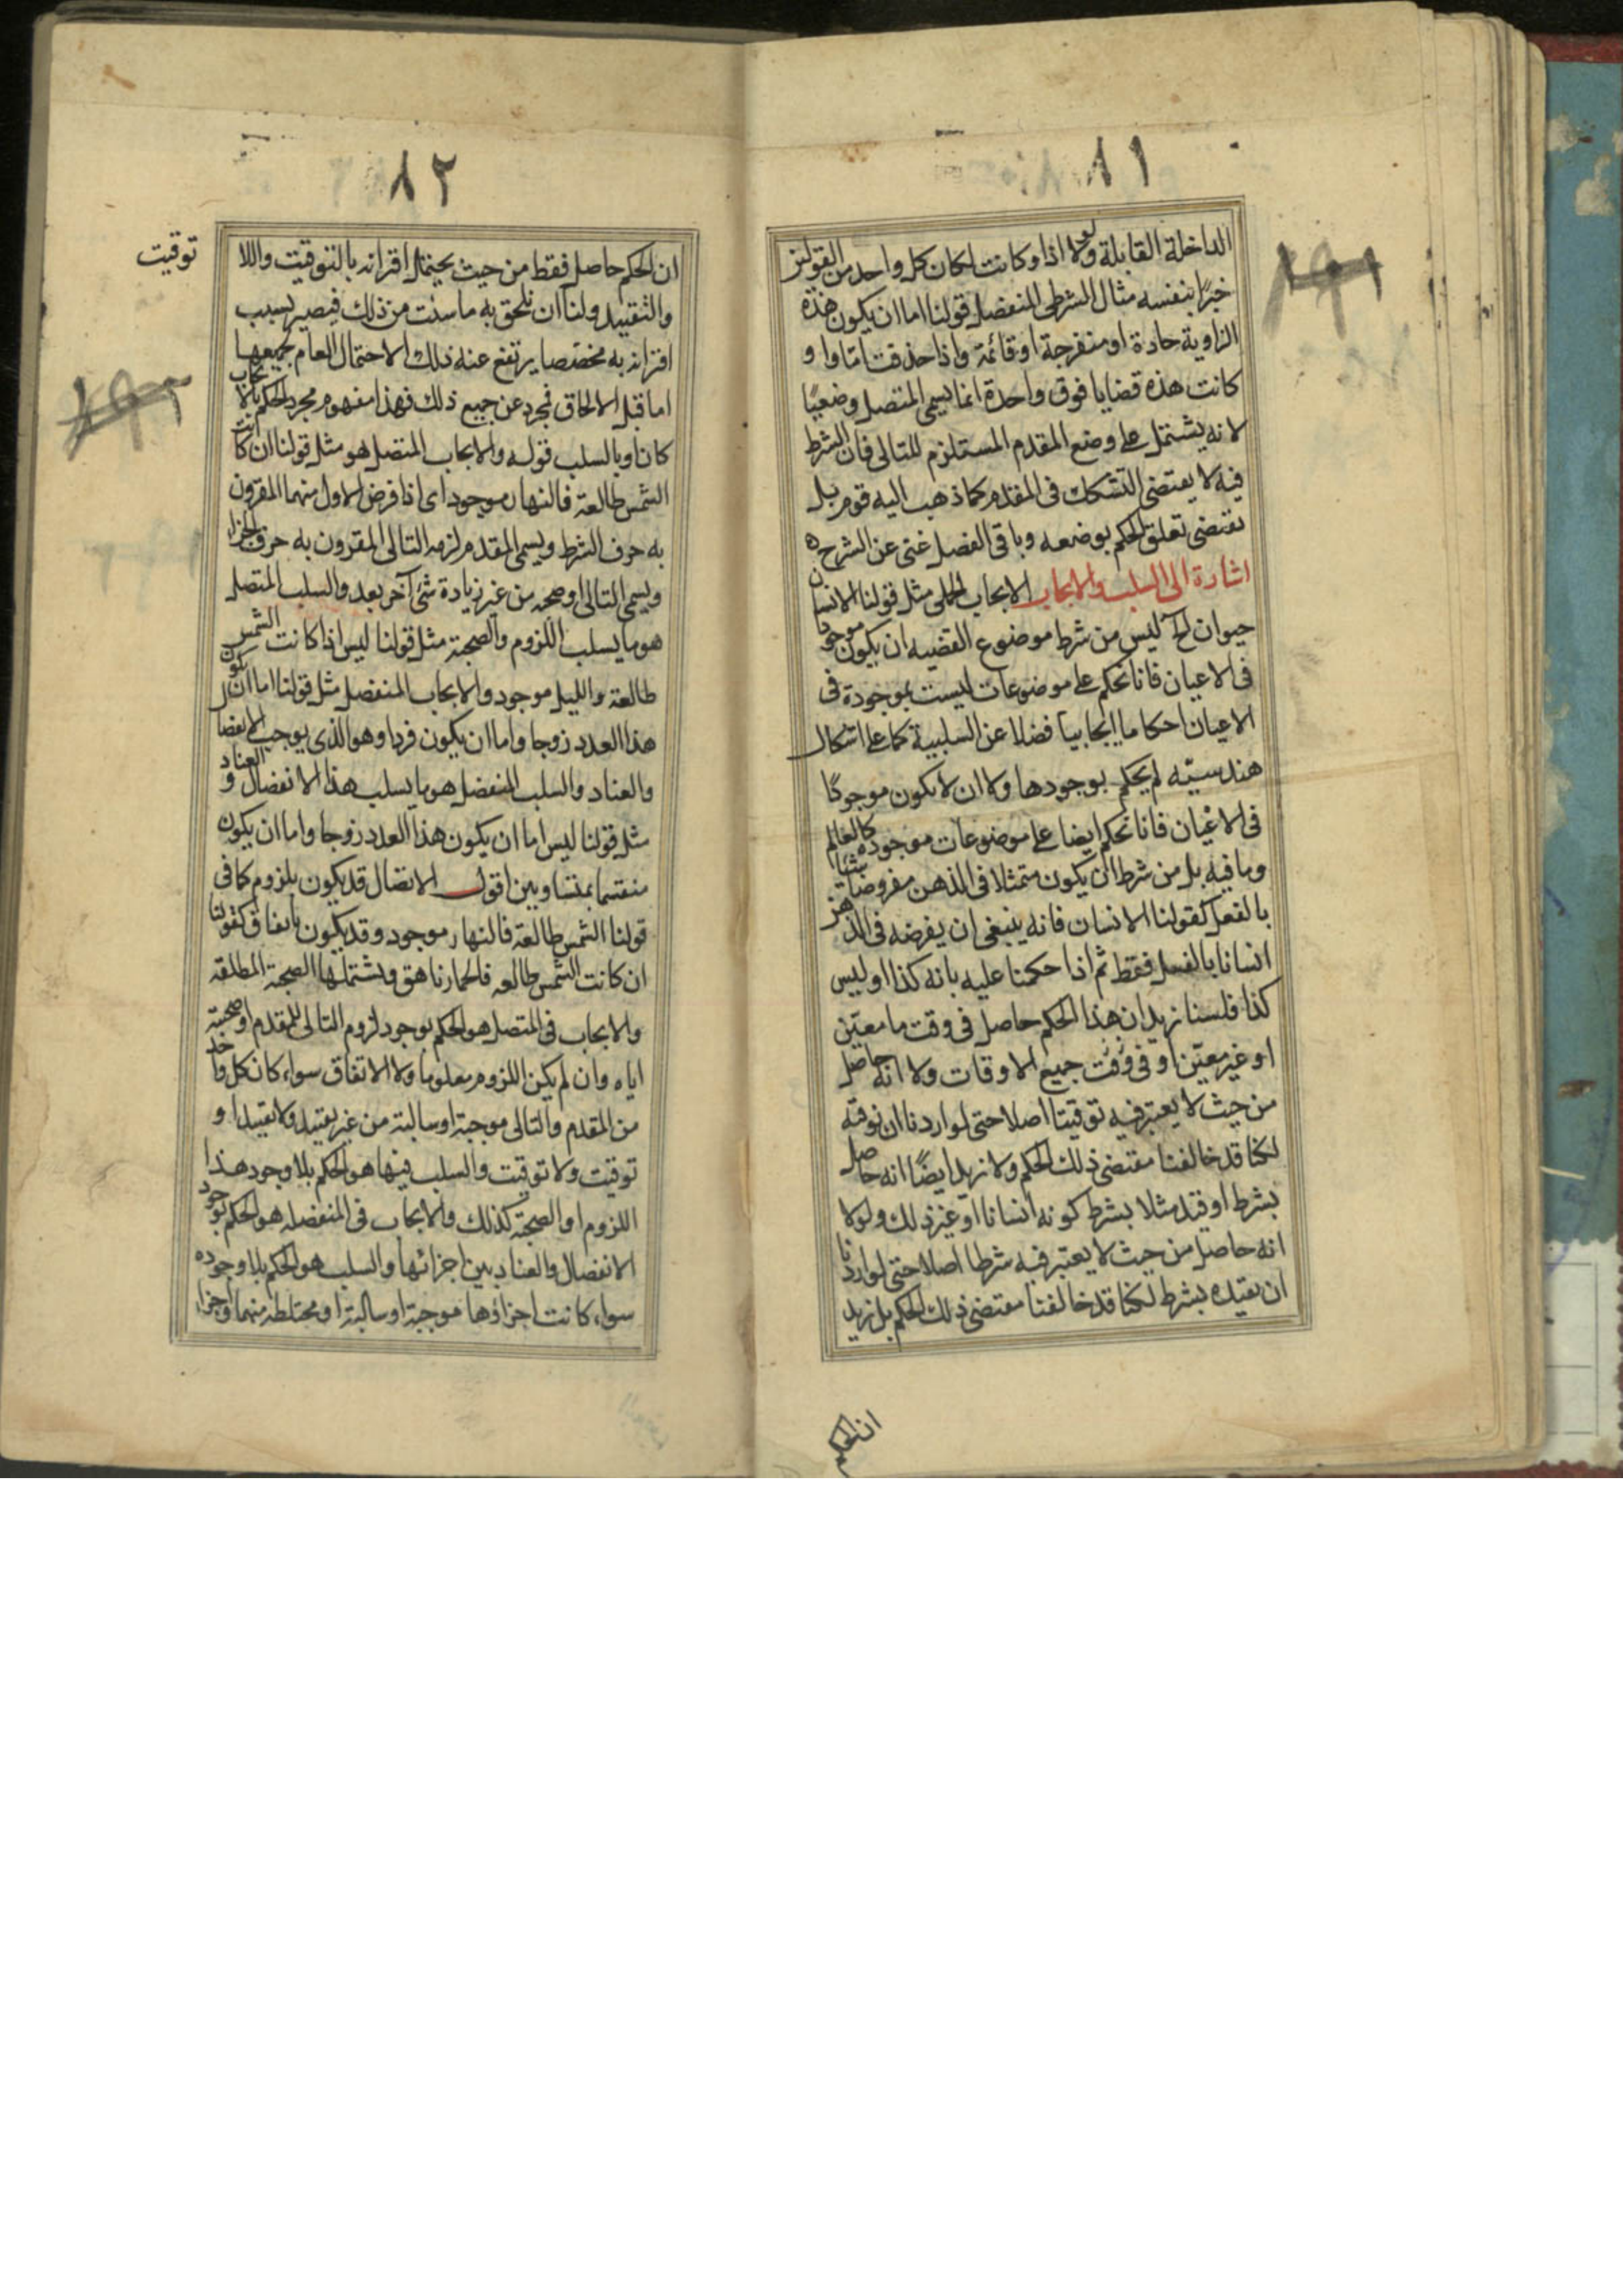 ٨١
الداخلة القابلة ولولا اذا وكانت لكان كل واحد من القولين
خبرًا بنفسه مثال الشرطى المنفصل قولنا اما ان يكون هذه
الزاوية حادة او منفرجة او قائمة واذا حذفت امّا واو
كانت هذه قضايا فوق واحدة انما يسمى المتصل وضعيًا
لانه يشتمل على وضع المقدم المستلزم للتالى فان الشرط
فيه لا يقتضى التشكك فى المقدم كما ذهب اليه قوم بل
يقتضى تعلق الحكم بوضعه وباقى الفصل غنى عن الشرح ه
اشارة الى السلب والايجاب الايجاب الحملى مثل قولنا الانسان
حيوان ليس من شرط موضوع القضيه ان يكون موجودا
فى الاعيان فانا نحكم على موضوعات ليست بموجودة فى
الاعيان احكاما ايجابيا فضلا عن السلبية كما على اشكال
هندسيّه لم يحكم بوجودها ولا ان لا يكون موجودًا
فى الاعيان فانا نحكم ايضا على موضوعات موجوده كالعالم
وما فيه بل من شرط ان يكون متمثلا فى الذهن مفروضا شيئا
بالفعل كقولنا الانسان فانه ينبغى ان يفرضه فى الذهن
انسانا بالفعل فقط ثم اذا حكمنا عليه بانه كذا او ليس
كذا فلسنا نريد ان هذا الحكم حاصل فى وقت ما معيّن
او غير معيّن او فى وقت جميع الاوقات ولا انه حاصل
من حيث لا يعتبر فيه توقيتا اصلا حتى لو اردنا ان نوقته
لكنا قد خالفنا مقتضى ذلك الحكم ولا نريد ايضًا انه حاصل
بشرط او قيد مثلا بشرط كونه انسانا او غير ذلك ولولا
انه حاصل من حيث لا يعتبر فيه شرطا اصلا حتى لو اردنا
ان نقيده بشرط لكنا قد خالفنا مقتضى ذلك الحكم بل نريد
ان الحكم
٨٢
توقيت
ان الحكم حاصل فقط من حيث يحتمل اقترانه بالتوقيت واللا
والتقييد ولنا ان نلحق به ما شئت من ذلك فيصير بسبب
اقترانه به مخصصا يرتفع عنه ذلك الاحتمال العام لجميعها
اما قبل الالحاق فمجرد عن جميع ذلك فهذا مفهوم مجرد الحكم بالايجاب
كان او بالسلب قوله والايجاب المتصل هو مثل قولنا ان كانت
الشمس طالعة فالنهار موجود اى اذا فرض الاول منهما المقرون
به حرف الشرط ويسمى المقدم لزمه التالى المقرون به حرف الجزا
ويسمى التالى او صحبه من غير زيادة شئ آخر بعد والسلب المتصل
هو ما يسلب اللزوم والصحبة مثل قولنا ليس اذا كانت الشمس
طالعة والليل موجود والايجاب المنفصل مثل قولنا اما ان يكون
هذا العدد زوجا واما ان يكون فردا وهو الذى يوجب الانفصال
والعناد والسلب المنفصل هو ما يسلب هذا الانفصال والعناد
مثل قولنا ليس اما ان يكون هذا العدد زوجا واما ان يكون
منقسما بمتساويين اقول الاتصال قد يكون بلزوم كما فى
قولنا الشمس طالعة فالنهار موجود وقد يكون باتفاق كقولنا
ان كانت الشمس طالعه فالحمار ناهق ويشتملها الصحبة المطلقه
والايجاب فى المتصل هو الحكم بوجود لزوم التالى للمقدم او صحبته
اياه وان لم يكن اللزوم معلوما ولا الاتفاق سواء كان كل واحد
من المقدم والتالى موجبة او سالبة من غير تقييد ولا تقييد او
توقيت ولا توقيت والسلب فيها هو الحكم بلا وجود هذا
اللزوم او الصحبة كذلك والايجاب فى المنفصله هو الحكم بوجود
الانفصال والعناد بين اجزائها والسلب هو الحكم بلا وجوده
سواء كانت اجزاؤها موجبة او سالبة او مختلطه منهما واجزاء